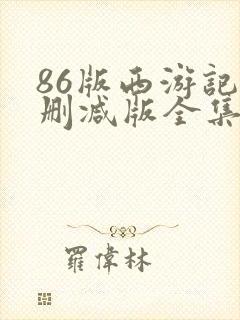 86版西游記
删减版全集
羅偉林